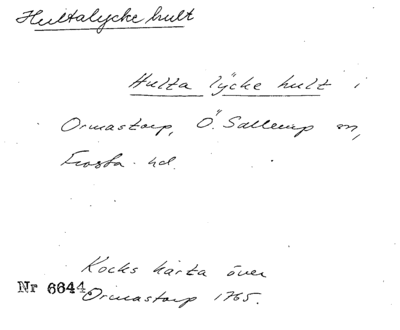 Hultalycke hult
Hulta lÿcke hult i
Ormastorp, Ö. Sallerup sn,
Frosta hd.
Kocks karta över
Nr 6644 Ormastorp 1765.